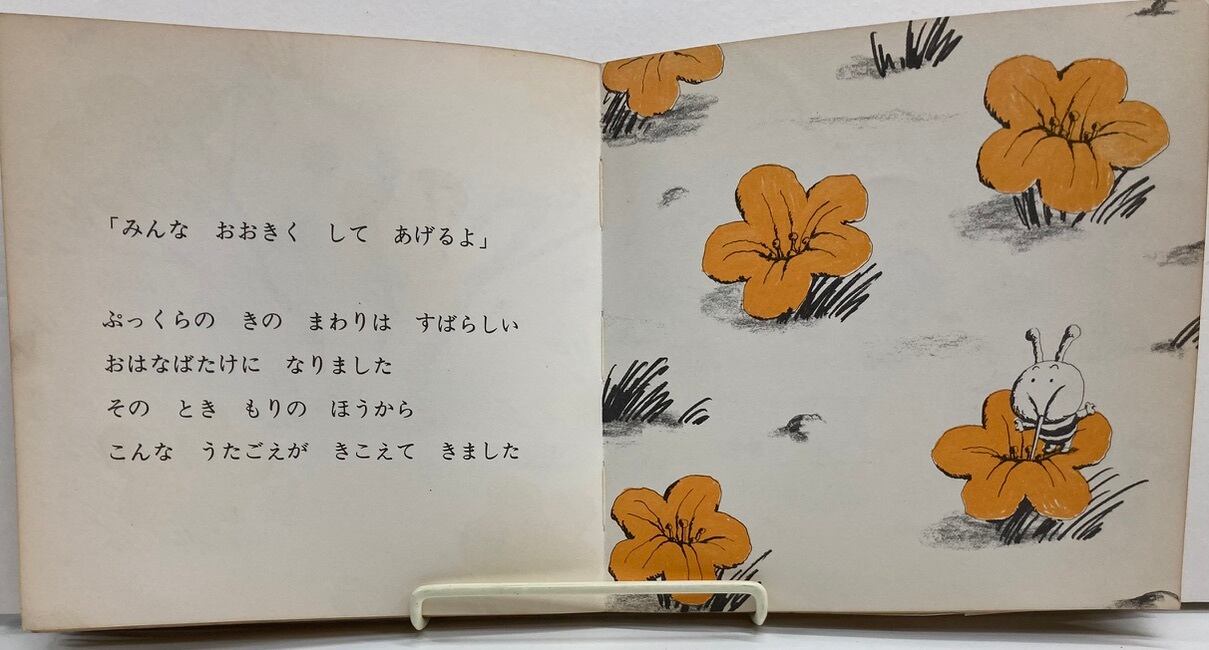 「みんな　おおきく　して　あげるよ」
ぷっくらの　きの　まわりは　すばらしい
おはなばたけに　なりました
その　とき　もりの　ほうから
こんな　うたごえが　きこえて　きました